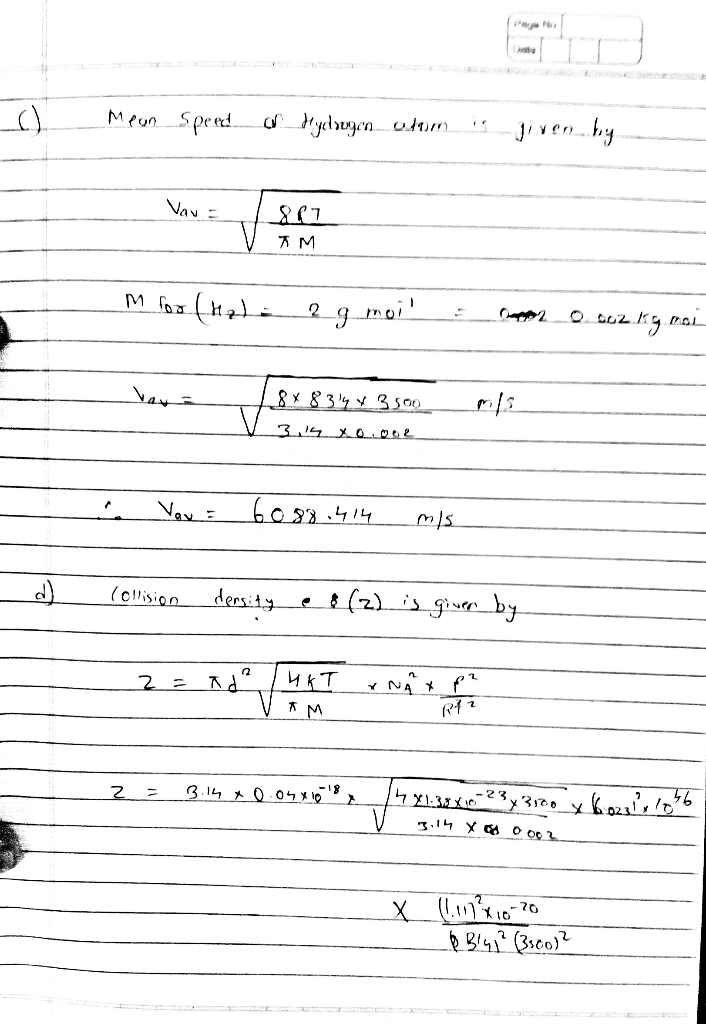 Page No
Date
C) Mean Speed of Hydrogen atom is given by
Vav = √(8RT / πM)
M for (H2) = 2 g mol⁻¹ = 0.002 kg mol
Vav = √(8 x 8.314 x 3500 / 3.14 x 0.002) m/s
∴ Vav = 6088.414 m/s
d) Collision density (z) is given by
z = πd² √(4kT / πM) x NA² x P² / RT²
z = 3.14 x 0.04 x 10⁻¹⁸ x √(4 x 1.38 x 10⁻²³ x 3500 / 3.14 x 0.002) x (6.023)² x 10⁴⁶
x (1.11)² x 10⁻²⁰ / (8.314)² (3500)²